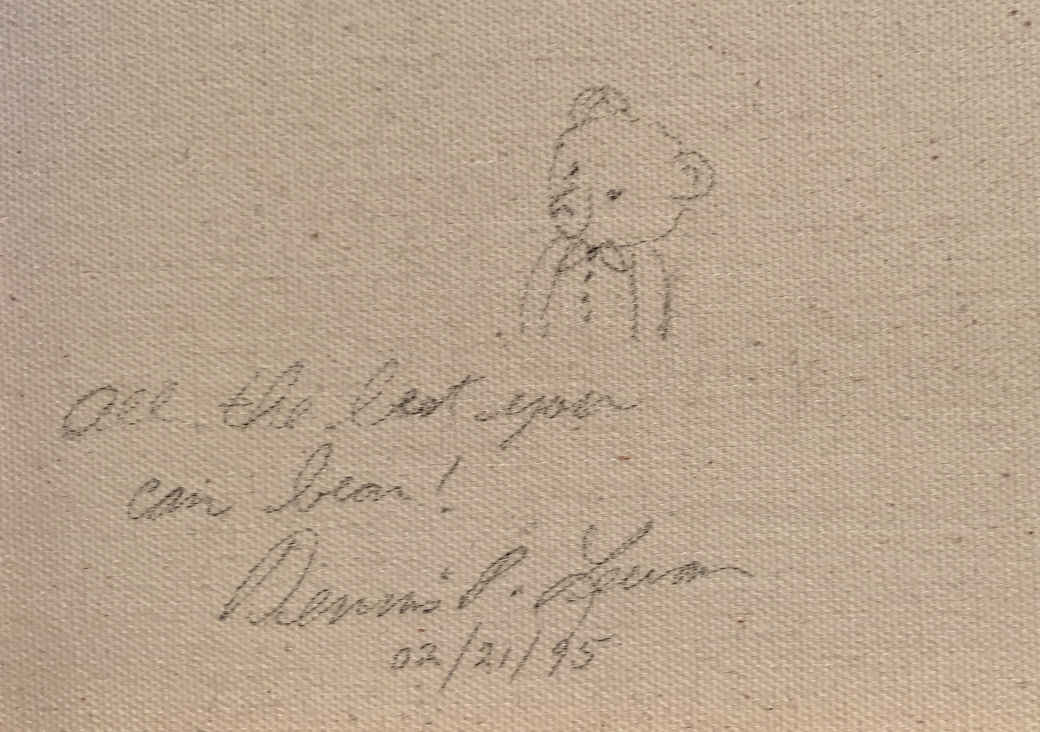 All the best you
can bear!
Dennis P.
02/21/95